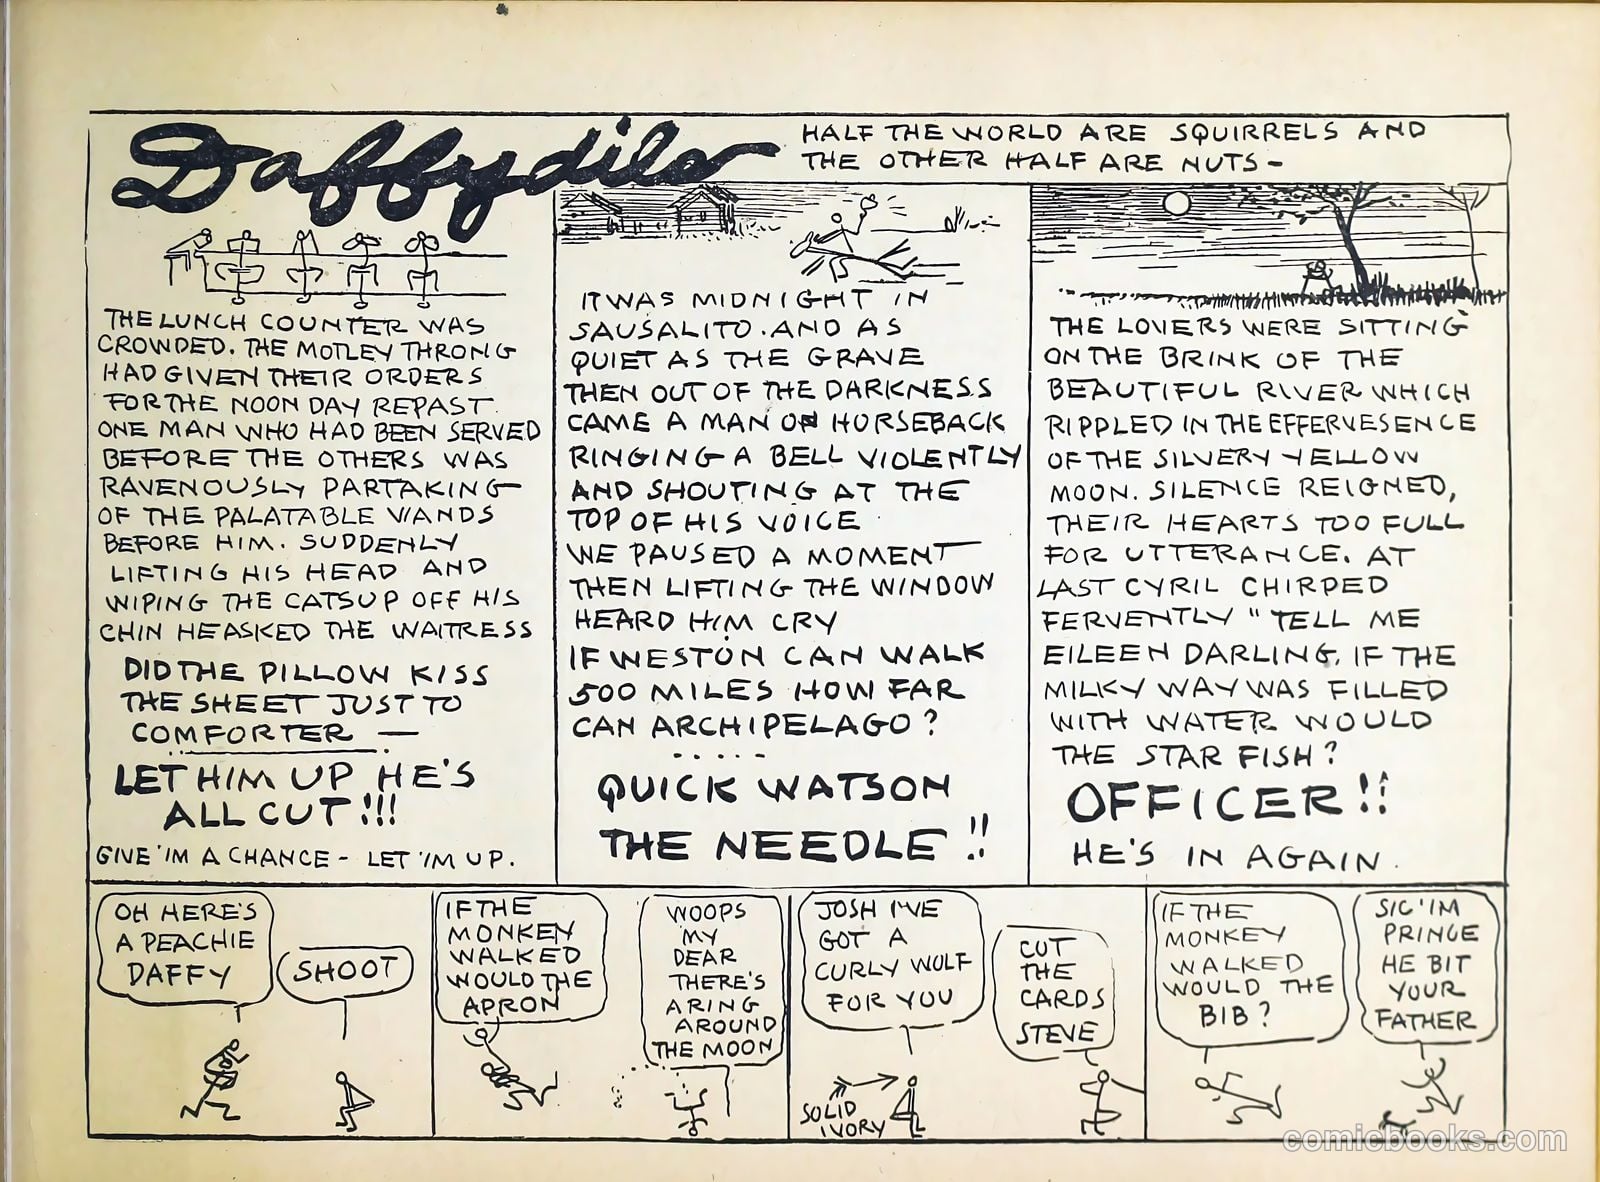 Daffydils
HALF THE WORLD ARE SQUIRRELS AND
THE OTHER HALF ARE NUTS-
THE LUNCH COUNTER WAS
CROWDED. THE MOTLEY THRONG
HAD GIVEN THEIR ORDERS
FOR THE NOON DAY REPAST.
ONE MAN WHO HAD BEEN SERVED
BEFORE THE OTHERS WAS
RAVENOUSLY PARTAKING
OF THE PALATABLE VIANDS
BEFORE HIM. SUDDENLY
LIFTING HIS HEAD AND
WIPING THE CATSUP OFF HIS
CHIN HE ASKED THE WAITRESS
DID THE PILLOW KISS
THE SHEET JUST TO
COMFORTER —
LET HIM UP HE'S
ALL CUT!!!
GIVE 'IM A CHANCE - LET 'IM UP.
IT WAS MIDNIGHT IN
SAUSALITO. AND AS
QUIET AS THE GRAVE
THEN OUT OF THE DARKNESS
CAME A MAN ON HORSEBACK
RINGING A BELL VIOLENTLY
AND SHOUTING AT THE
TOP OF HIS VOICE
WE PAUSED A MOMENT
THEN LIFTING THE WINDOW
HEARD HIM CRY
IF WESTON CAN WALK
500 MILES HOW FAR
CAN ARCHIPELAGO?
. . . . .
QUICK WATSON
THE NEEDLE!!
THE LOVERS WERE SITTING
ON THE BRINK OF THE
BEAUTIFUL RIVER WHICH
RIPPLED IN THE EFFERVESENCE
OF THE SILVERY YELLOW
MOON. SILENCE REIGNED,
THEIR HEARTS TOO FULL
FOR UTTERANCE. AT
LAST CYRIL CHIRPED
FERVENTLY "TELL ME
EILEEN DARLING. IF THE
MILKY WAY WAS FILLED
WITH WATER WOULD
THE STAR FISH?
OFFICER!!
HE'S IN AGAIN.
OH HERE'S
A PEACHIE
DAFFY
SHOOT
IF THE
MONKEY
WALKED
WOULD THE
APRON
WOOPS
MY
DEAR
THERE'S
A RING
AROUND
THE MOON
JOSH I'VE
GOT A
CURLY WOLF
FOR YOU
CUT
THE
CARDS
STEVE
SOLID
IVORY
IF THE
MONKEY
WALKED
WOULD THE
BIB?
SIC 'IM
PRINCE
HE BIT
YOUR
FATHER
comicbooks.com